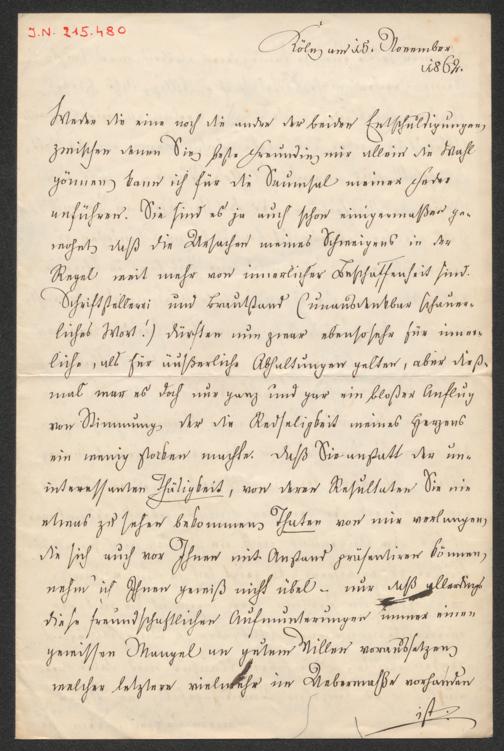 J.N. 215.480
Köln, am 15. November
1862.
Weder die eine noch die andre der beiden Entschuldigungen,
zwischen denen Sie, beste Freundin, mir allein die Wahl
gönnen, kann ich für die Saumsal meiner Feder
anführen. Sie sind es ja auch schon einigermaßen ge-
wohnt, daß die Ursachen meines Schweigens in der
Regel weit mehr von innerlicher Beschaffenheit sind.
Schriftstellerei und Brautstand (unausdenkbar schauer-
liches Wort!) dürften nun zwar ebensosehr für inner-
liche, als für äußerliche Abhaltungen gelten, aber dieß-
mal war es doch nur ganz und gar ein bloßer Anflug
von Stimmung, der die Redseligkeit meines Herzens
ein wenig stocken machte. Daß Sie anstatt der un-
interessanten Thätigkeit, von deren Resultaten Sie nie
etwas zu sehen bekommen, Thaten von mir verlangen,
die sich auch vor Ihnen mit Anstand präsentiren können,
nehm' ich Ihnen gewiß nicht übel – nur daß allerdings
diese freundschaftlichen Aufmunterungen immer einen
gewissen Mangel an gutem Willen voraussetzen,
welcher letztere vielmehr im Uebermaße vorhanden
ist.